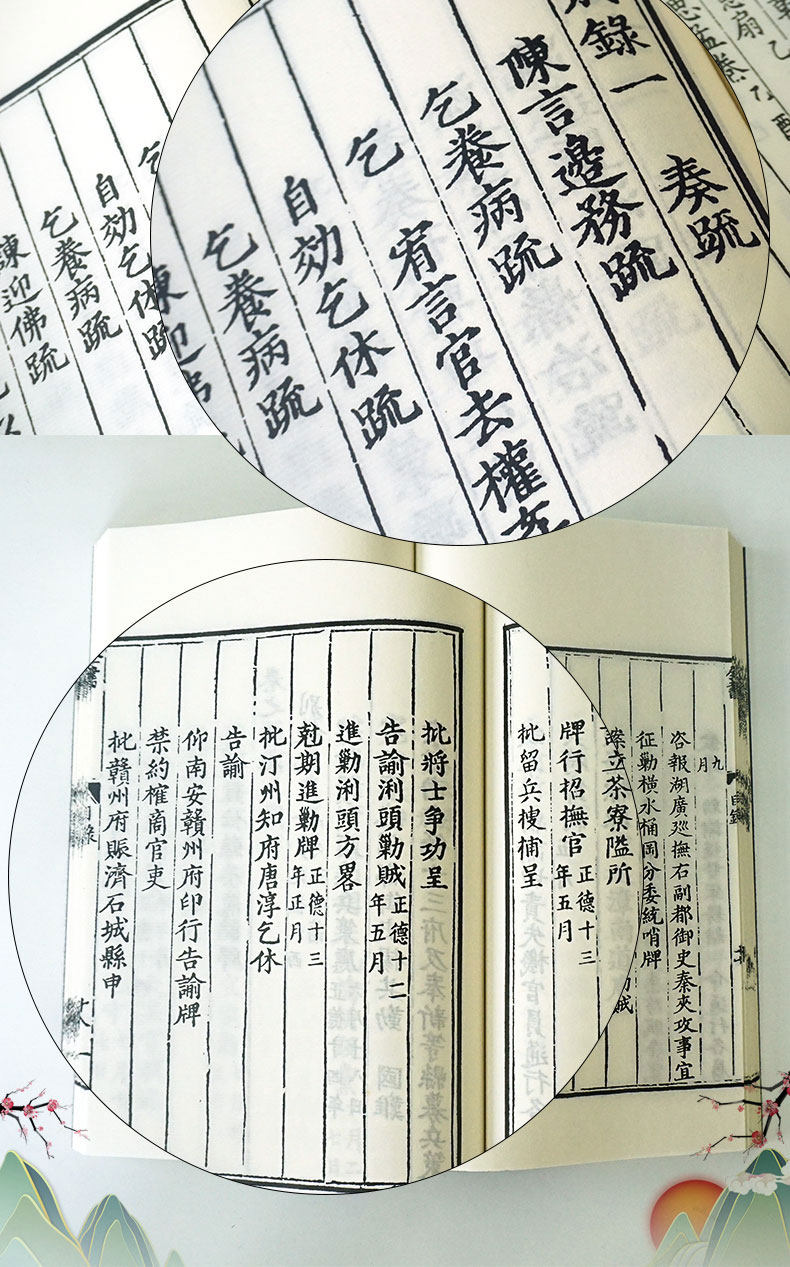 錄一 奏疏
陳言邊務疏
乞養病疏
乞 宥言官去權
自劾乞休疏
乞養病疏
自劾乞休疏
乞養病疏
諫迎佛疏
九月
咨報湖廣巡撫右副都御史秦夾攻事宜
征勦橫水桶岡分委統哨牌
立茶寮隘所
牌行招撫官 正德十三年五月
批留兵搜捕呈
批將士爭功呈
告諭浰頭勦賊 正德十二年五月
進勦浰頭方畧
尅期進勦牌 正德十三年正月
批汀州知府唐淳乞休
告諭
仰南安贛州府印行告諭牌
禁約榷商官吏
批贛州府賑濟石城縣申
目錄